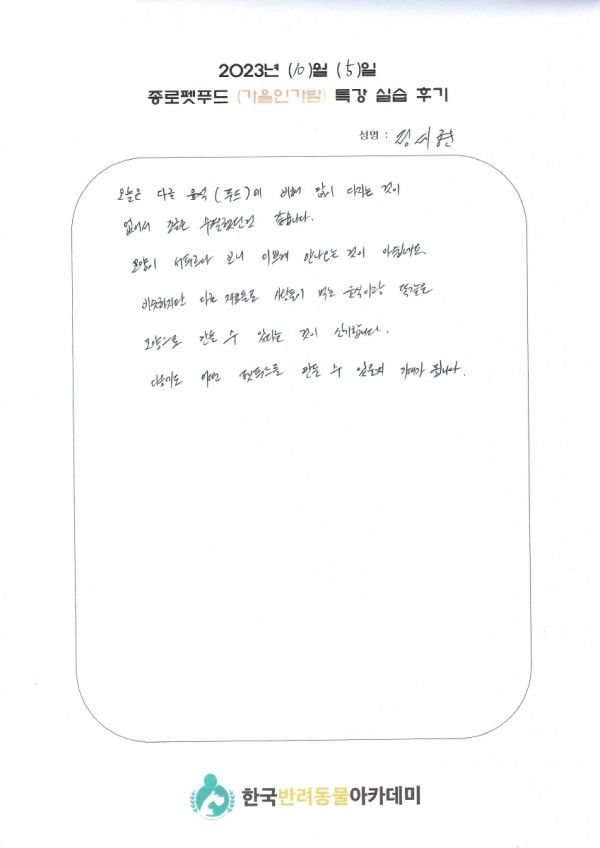 2023년 (10)월 (5)일
종로펫푸드 (가을인가밤) 특강 실습 후기
성명 : 김서현
오늘은 다른 음식(푸드)에 비해 많이 다지는 것이
없어서 조금은 수월했던것 같습니다.
모양이 서투르다 보니 이쁘게 안나오는 것이 아쉽네요.
비슷하지만 다른 재료들로 사람들이 먹는 음식이랑 똑같은
모양으로 만들 수 있다는 것이 신기합니다.
다음에도 어떤 펫푸드를 만들 수 있을지 기대가 됩니다.
한국반려동물아카데미